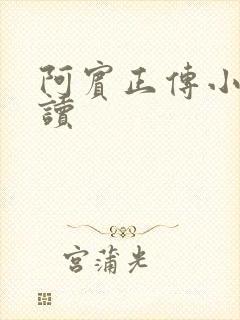 阿賓正傳小
讀
宮蒲光